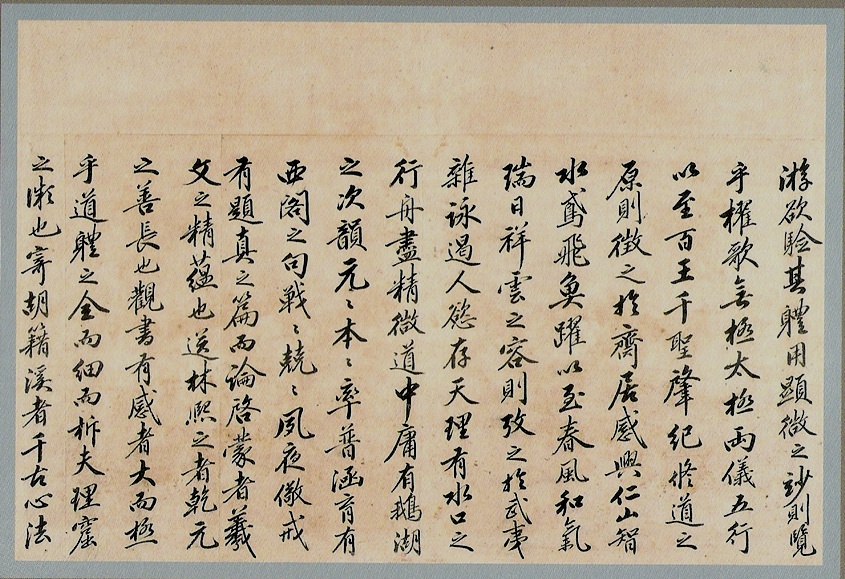 游欲驗其軆用顯微之妙則覽
乎櫂歌無極太極両儀五行
以至百王千聖肇紀修道之
原則徴之於齋居感興仁山智
水鳶飛魚躍以至春風和氣
瑞日祥雲之容則攷之於武夷
雜詠遏人慾存天理有水口之
行舟盡精微道中庸有鵝湖
之次韻元〻本〻率普涵育有
西閣之句戦〻兢〻夙夜儆戒
有題真之篇而論啓蒙者羲
文之精蘊也送林熈之者乾元
之善長也觀書有感者大而極
乎道軆之全而細而析夫理窟
之微也寄胡籍溪者千古心法